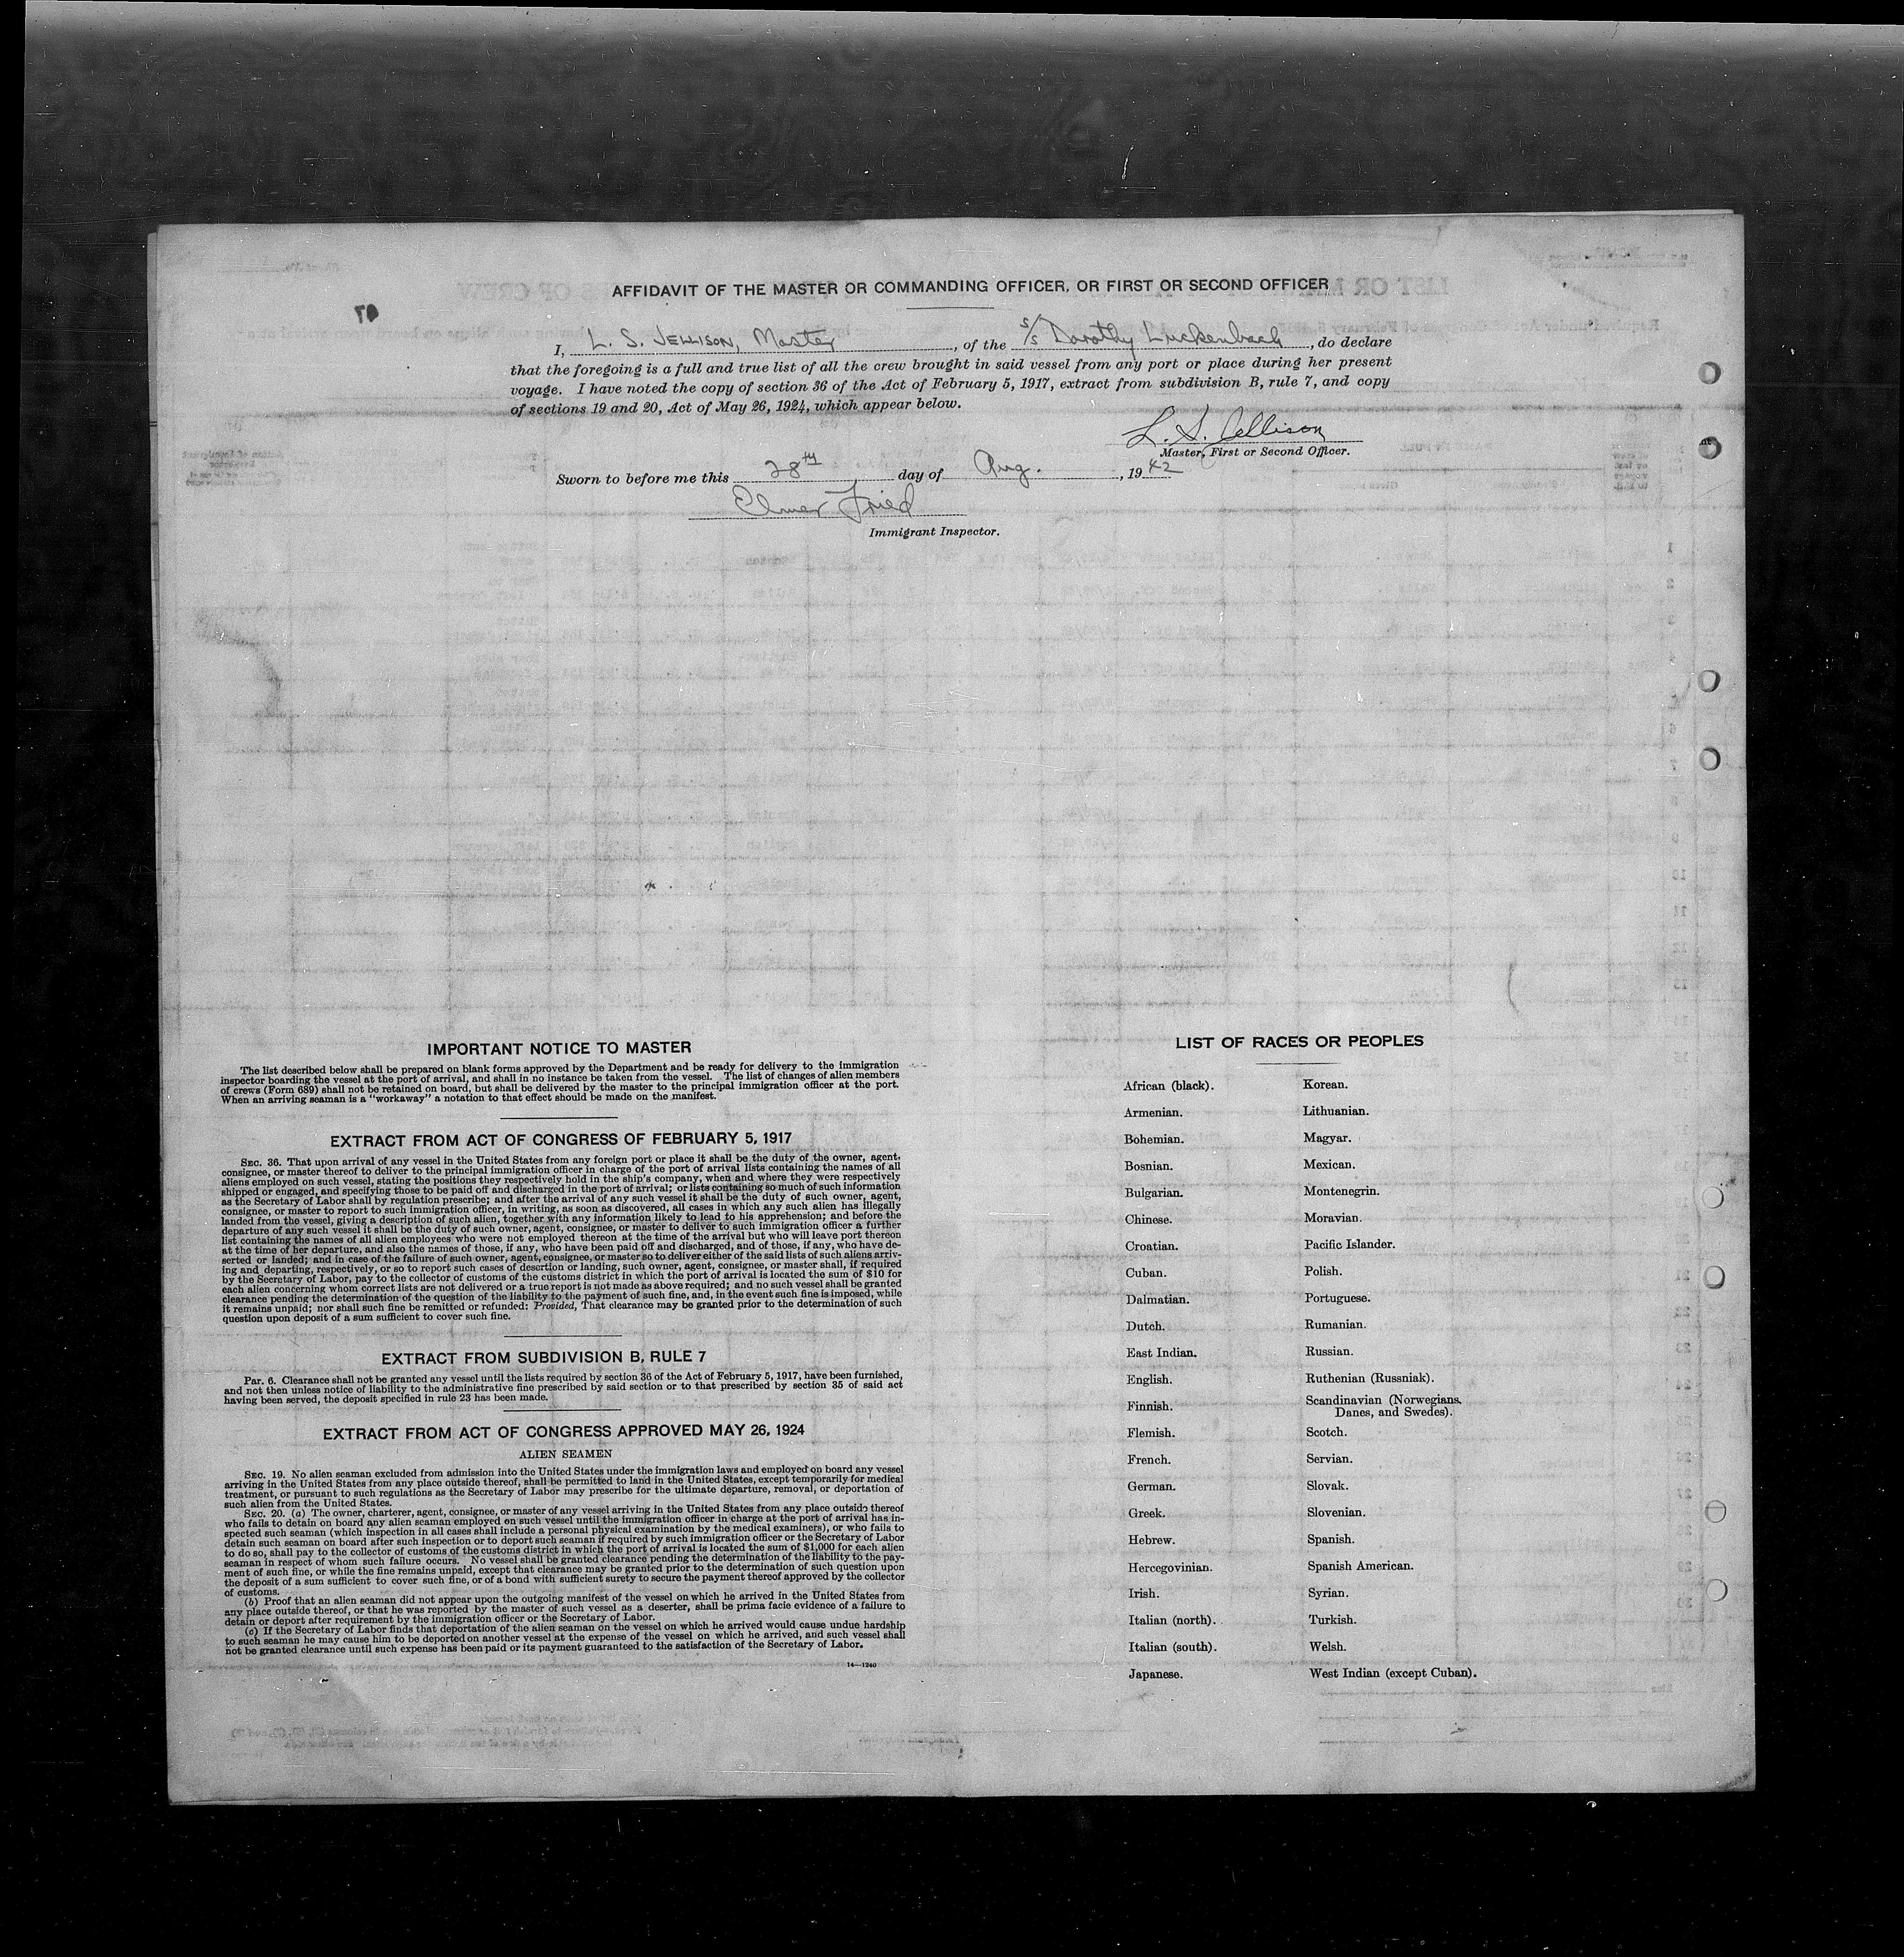 AFFIDAVIT OF THE MASTER OR COMMANDING OFFICER, OR FIRST OR SECOND OFFICER
I, L. S. JELLISON, Master, of the S/S Dorothy Luckenbach, do declare
that the foregoing is a full and true list of all the crew brought in said vessel from any port or place during her present
voyage. I have noted the copy of section 36 of the Act of February 5, 1917, extract from subdivision B, rule 7, and copy
of sections 19 and 20, Act of May 26, 1924, which appear below.
L. S. Jellison
Master, First or Second Officer.
Sworn to before me this 28th day of Aug., 1942
Elmer Fried
Immigrant Inspector.
IMPORTANT NOTICE TO MASTER
The list described below shall be prepared on blank forms approved by the Department and be ready for delivery to the immigration
inspector boarding the vessel at the port of arrival, and shall in no instance be taken from the vessel. The list of changes of alien members
of crews (Form 689) shall not be retained on board, but shall be delivered by the master to the principal immigration officer at the port.
When an arriving seaman is a "workaway" a notation to that effect should be made on the manifest.
EXTRACT FROM ACT OF CONGRESS OF FEBRUARY 5, 1917
SEC. 36. That upon arrival of any vessel in the United States from any foreign port or place it shall be the duty of the owner, agent,
consignee, or master thereof to deliver to the principal immigration officer in charge of the port of arrival lists containing the names of all
aliens employed on such vessel, stating the positions they respectively hold in the ship's company, when and where they were respectively
shipped or engaged, and specifying those to be paid off and discharged in the port of arrival; or lists containing so much of such information
as the Secretary of Labor shall by regulation prescribe; and after the arrival of any such vessel it shall be the duty of such owner, agent,
consignee, or master to report to such immigration officer, in writing, as soon as discovered, all cases in which any such alien has illegally
landed from the vessel, giving a description of such alien, together with any information likely to lead to his apprehension; and before the
departure of any such vessel it shall be the duty of such owner, agent, consignee, or master to deliver to such immigration officer a further
list containing the names of all alien employees who were not employed thereon at the time of the arrival but who will leave port thereon
at the time of her departure, and also the names of those, if any, who have been paid off and discharged, and of those, if any, who have de-
serted or landed; and in case of the failure of such owner, agent, consignee, or master so to deliver either of the said lists of such aliens arriv-
ing and departing, respectively, or so to report such cases of desertion or landing, such owner, agent, consignee, or master shall, if required
by the Secretary of Labor, pay to the collector of customs of the customs district in which the port of arrival is located the sum of $10 for
each alien concerning whom correct lists are not delivered or a true report is not made as above required; and no such vessel shall be granted
clearance pending the determination of the question of the liability to the payment of such fine, and, in the event such fine is imposed, while
it remains unpaid; nor shall such fine be remitted or refunded: Provided, That clearance may be granted prior to the determination of such
question upon deposit of a sum sufficient to cover such fine.
EXTRACT FROM SUBDIVISION B, RULE 7
PAR. 6. Clearance shall not be granted any vessel until the lists required by section 36 of the Act of February 5, 1917, have been furnished,
and not then unless notice of liability to the administrative fine prescribed by said section or to that prescribed by section 35 of said act
having been served, the deposit specified in rule 23 has been made.
EXTRACT FROM ACT OF CONGRESS APPROVED MAY 26, 1924
ALIEN SEAMEN
SEC. 19. No alien seaman excluded from admission into the United States under the immigration laws and employed on board any vessel
arriving in the United States from any place outside thereof, shall be permitted to land in the United States, except temporarily for medical
treatment, or pursuant to such regulations as the Secretary of Labor may prescribe for the ultimate departure, removal, or deportation of
such alien from the United States.
SEC. 20. (a) The owner, charterer, agent, consignee, or master of any vessel arriving in the United States from any place outside thereof
who fails to detain on board any alien seaman employed on such vessel until the immigration officer in charge at the port of arrival has in-
spected such seaman (which inspection in all cases shall include a personal physical examination by the medical examiners), or who fails to
detain such seaman on board after such inspection or to deport such seaman if required by such immigration officer or the Secretary of Labor
to do so, shall pay to the collector of customs of the customs district in which the port of arrival is located the sum of $1,000 for each alien
seaman in respect of whom such failure occurs. No vessel shall be granted clearance pending the determination of the liability to the pay-
ment of such fine, or while the fine remains unpaid, except that clearance may be granted prior to the determination of such question upon
the deposit of a sum sufficient to cover such fine, or of a bond with sufficient surety to secure the payment thereof approved by the collector
of customs.
(b) Proof that an alien seaman did not appear upon the outgoing manifest of the vessel on which he arrived in the United States from
any place outside thereof, or that he was reported by the master of such vessel as a deserter, shall be prima facie evidence of a failure to
detain or deport after requirement by the immigration officer or the Secretary of Labor.
(c) If the Secretary of Labor finds that deportation of the alien seaman on the vessel on which he arrived would cause undue hardship
to such seaman he may cause him to be deported on another vessel at the expense of the vessel on which he arrived, and such vessel shall
not be granted clearance until such expense has been paid or its payment guaranteed to the satisfaction of the Secretary of Labor.
14—1240
LIST OF RACES OR PEOPLES
African (black).
Armenian.
Bohemian.
Bosnian.
Bulgarian.
Chinese.
Croatian.
Cuban.
Dalmatian.
Dutch.
East Indian.
English.
Finnish.
Flemish.
French.
German.
Greek.
Hebrew.
Hercegovinian.
Irish.
Italian (north).
Italian (south).
Japanese.
Korean.
Lithuanian.
Magyar.
Mexican.
Montenegrin.
Moravian.
Pacific Islander.
Polish.
Portuguese.
Rumanian.
Russian.
Ruthenian (Russniak).
Scandinavian (Norwegians,
Danes, and Swedes).
Scotch.
Servian.
Slovak.
Slovenian.
Spanish.
Spanish American.
Syrian.
Turkish.
Welsh.
West Indian (except Cuban).